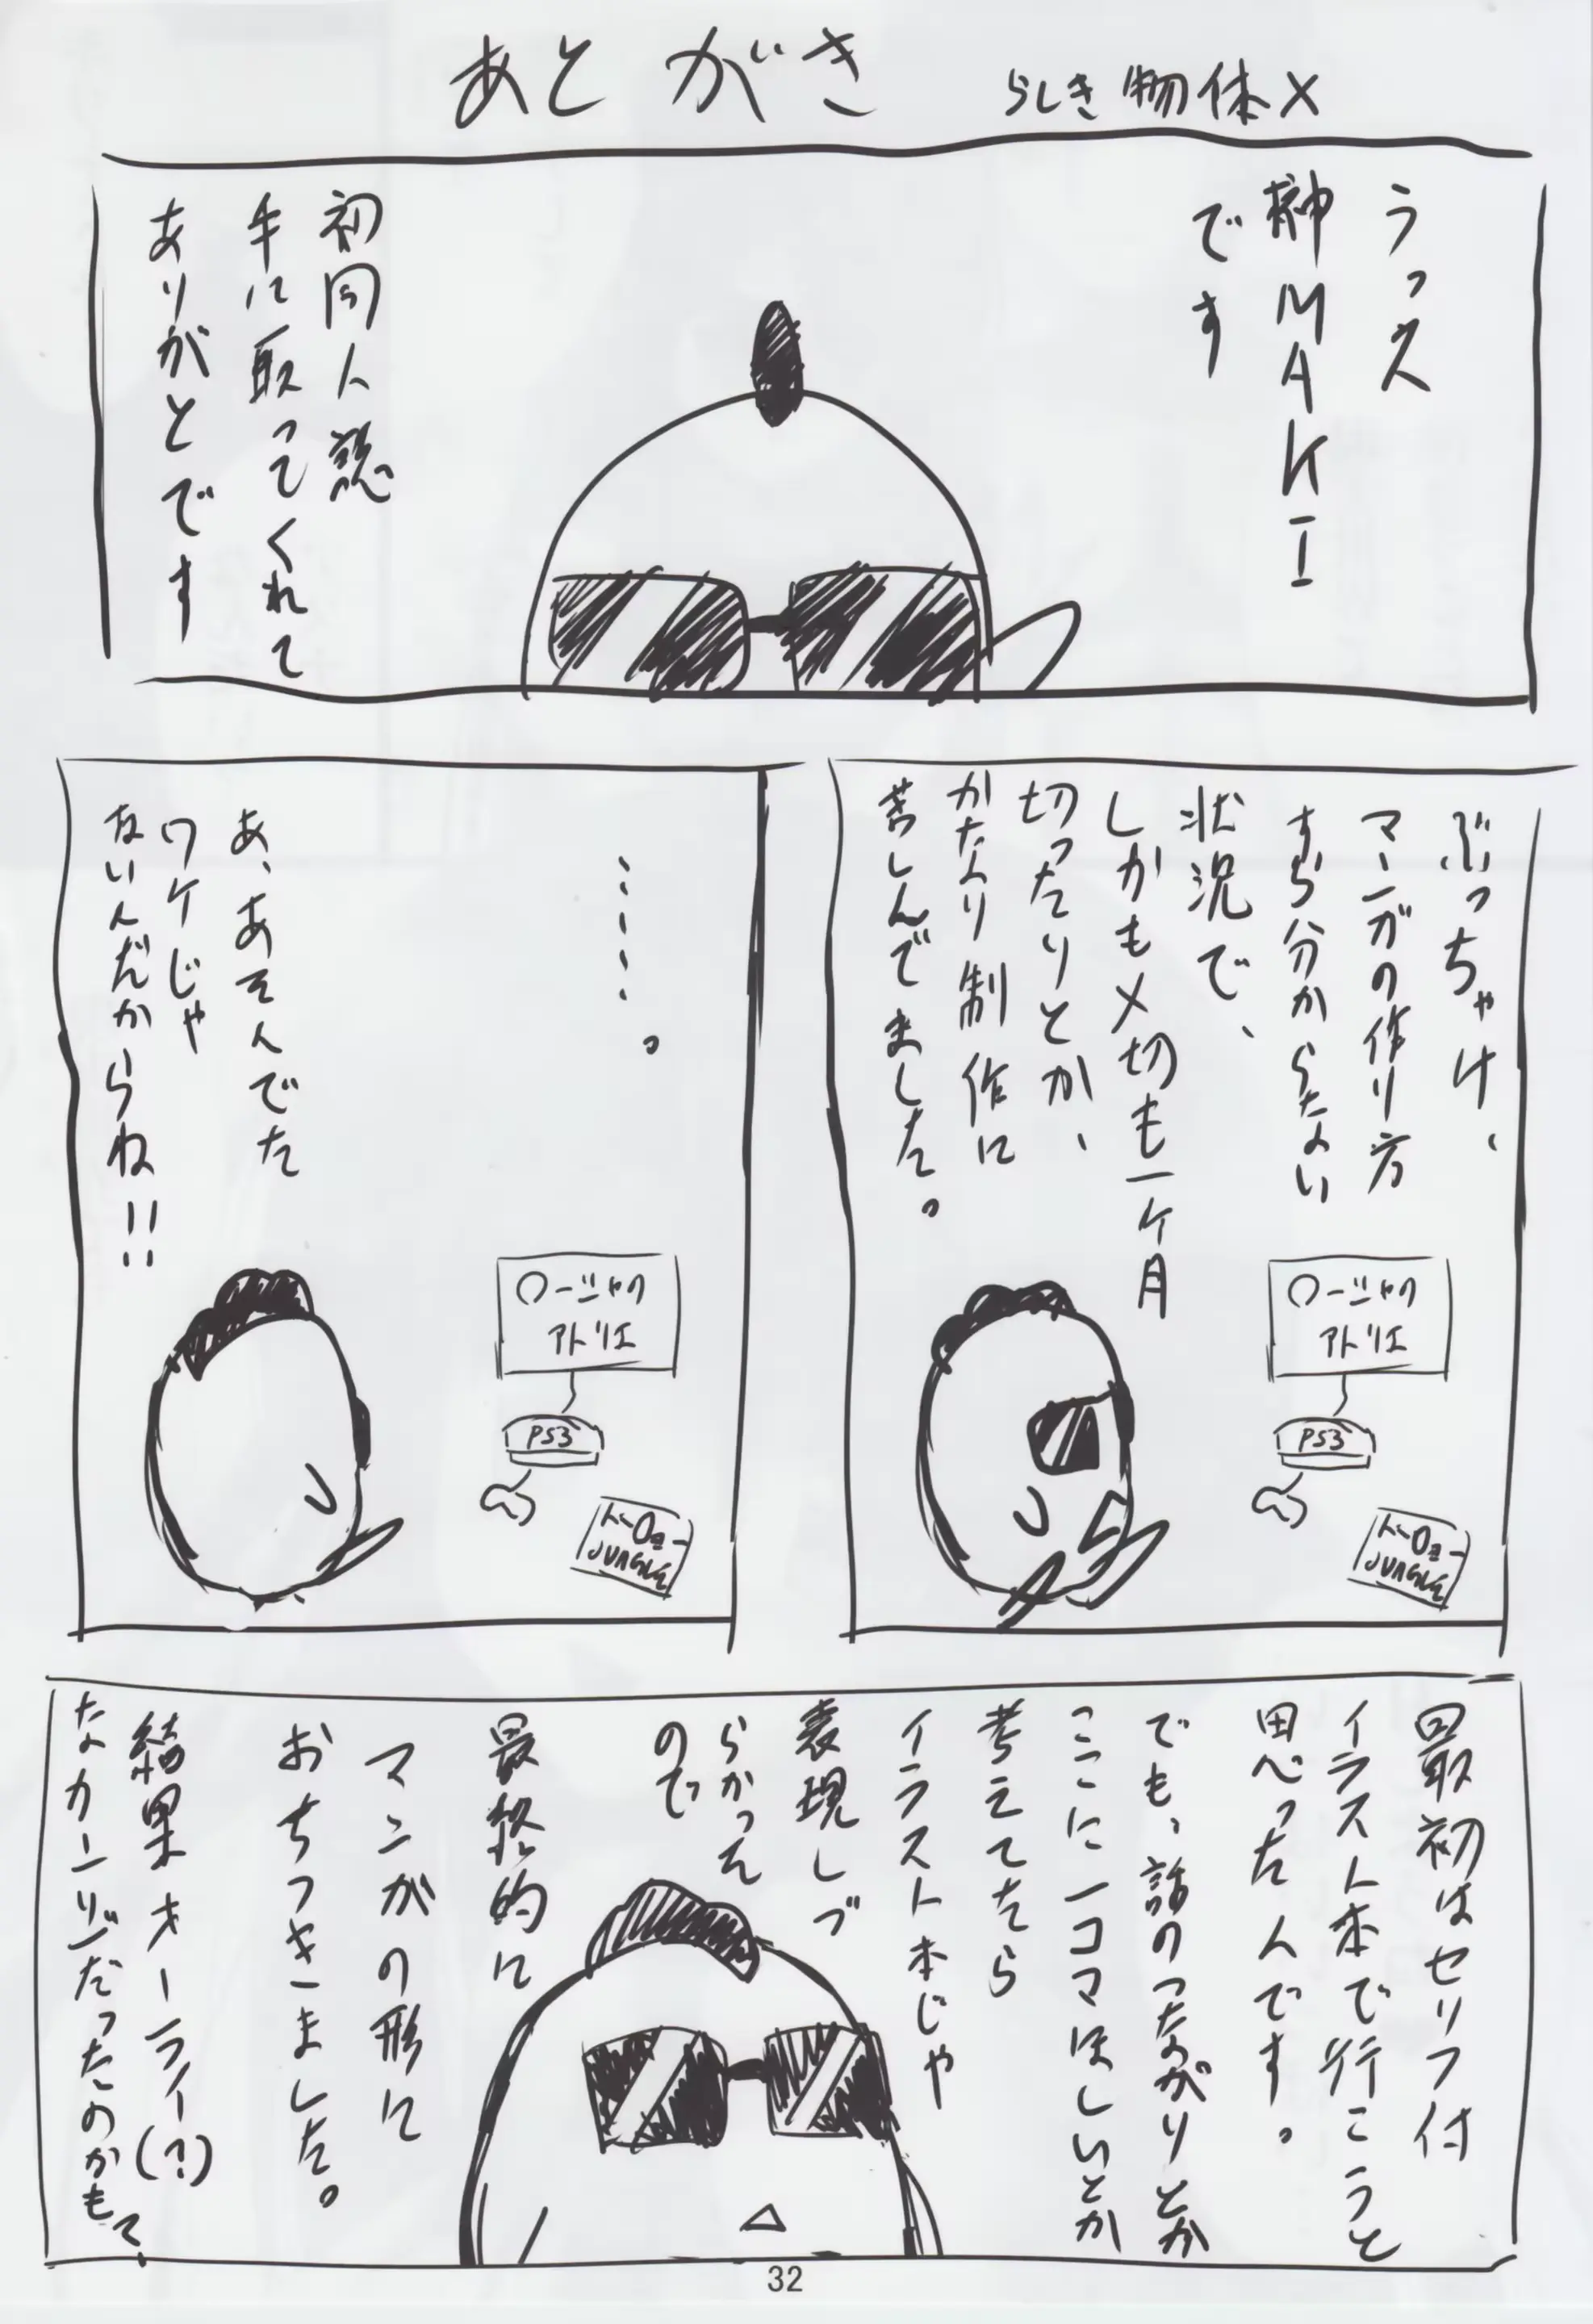 あとがき
らしき物体X
うっス
榊MAKI
です
初同人誌
手に取ってくれて
ありがとです
ぶっちゃけ、
マンガの作り方
すら分からない
状況で、
しかも〆切も一ケ月
切ったりとか、
かなり制作に
苦しんでました。
〇ージャの
アトリエ
PS3
トー〇ョー
JUNGLE
………。
あ、あそんでた
ワケじゃ
ないんだからね!!
〇ージャの
アトリエ
PS3
トー〇ョー
JUNGLE
最初はセリフ付
イラスト本で行こうと
思ったんです。
でも、話のつながりとか
ここに一コマほしいとか
考えてたら
イラスト本じゃ
表現しづ
らかった
ので
最終的に
マンガの形に
おちつきました。
結果オーライ(?)
なカンジだったのかもて、
32